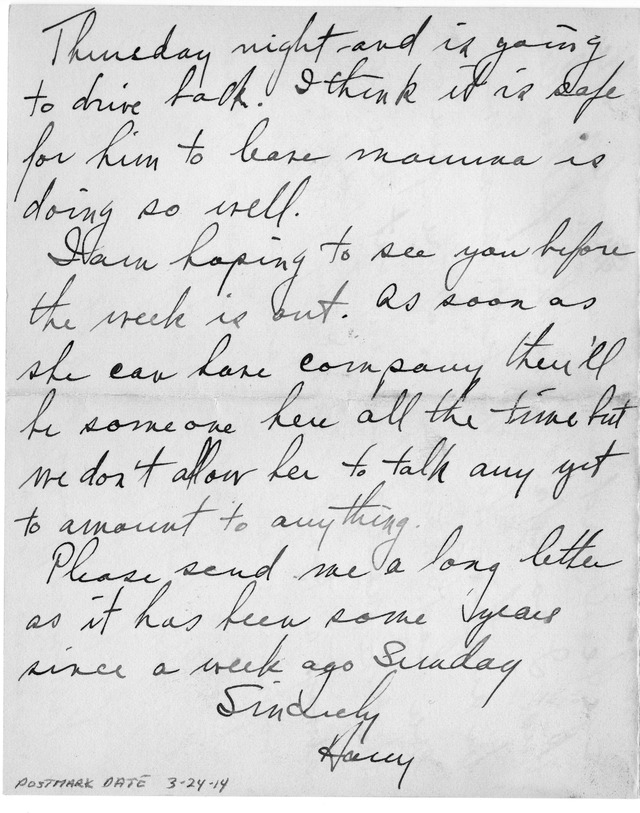 Thursday night and is going
to drive back. I think it is safe
for him to leave mamma is
doing so well.
I am hoping to see you before
the week is out. As soon as
she can have company they'll
be someone here all the time but
we don't allow her to talk any yet
to amount to anything.
Please send me a long letter
as it has been some years
since a week ago Sunday
Sincerely
Harry
POSTMARK DATE 3-24-14